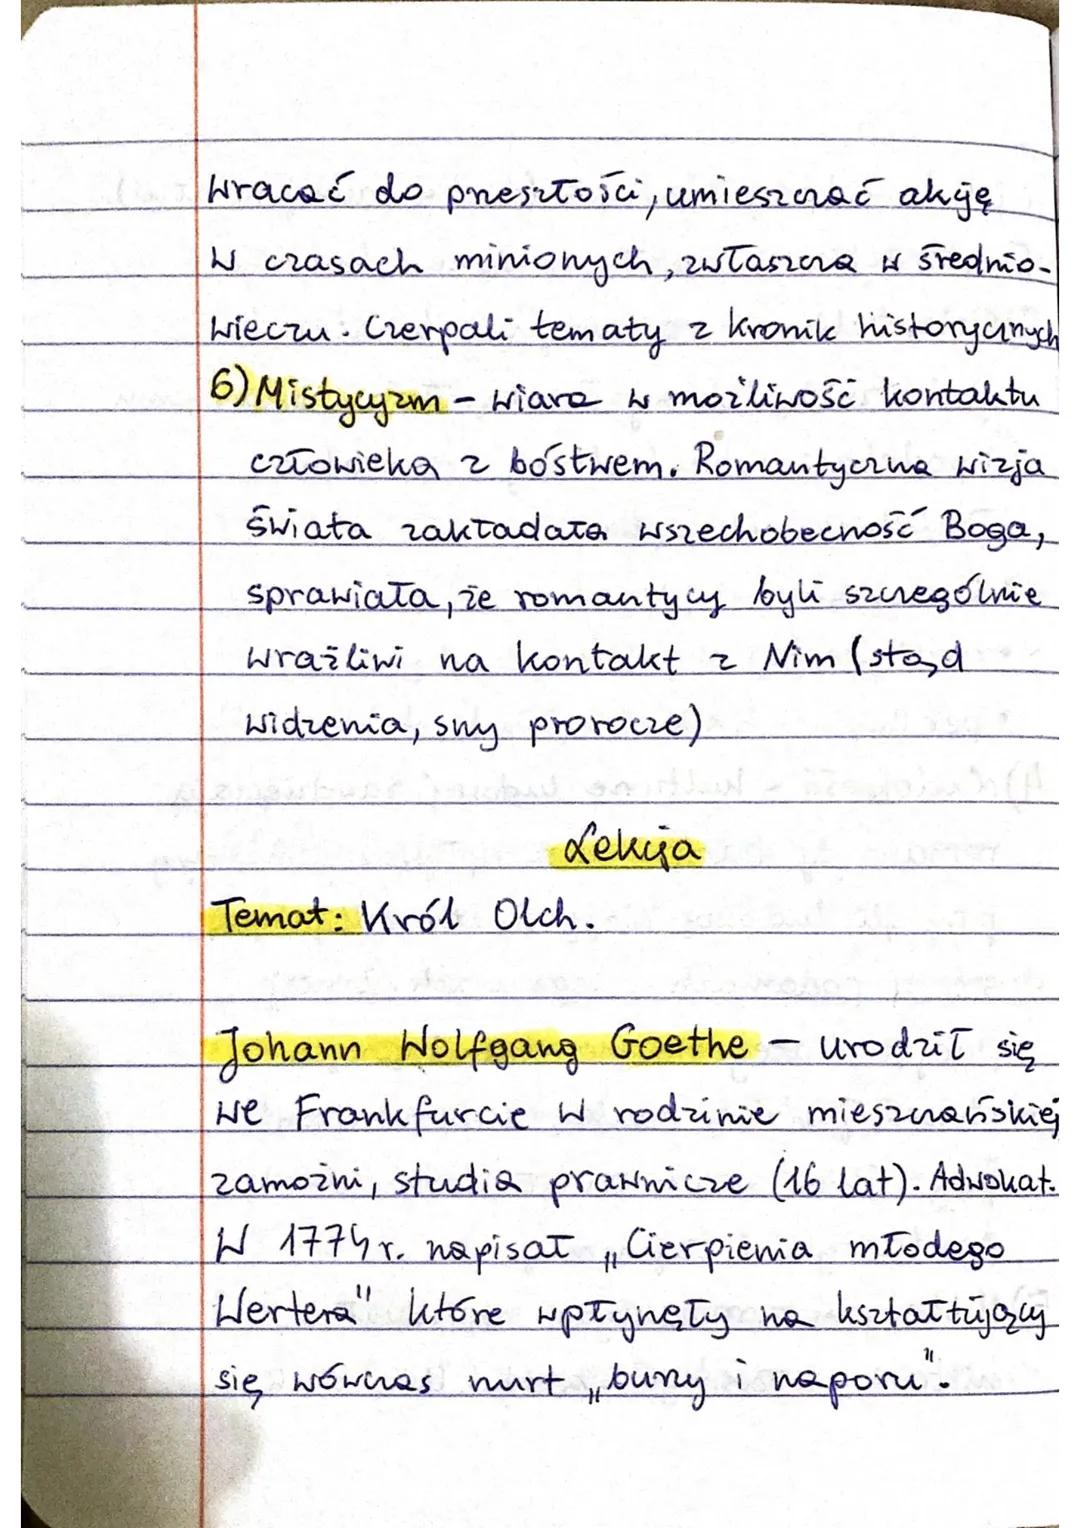 wracać do przeszłości, umieszczać akcję
w czasach minionych, zwłaszcza w średnio-
wieczu. Czerpali tematy z kronik historycznych
6) Mistycyzm - wiara w możliwość kontaktu
człowieka z bóstwem. Romantyczna wizja
świata zakładała wszechobecność Boga,
sprawiała, że romantycy byli szczególnie
wrażliwi na kontakt z Nim (stąd
widzenia, sny prorocze)
Lekcja
Temat: Król Olch.
Johann Wolfgang Goethe - urodził się
we Frankfurcie w rodzinie mieszczańskiej
zamożni, studia prawnicze (16 lat). Adwokat.
W 1774 r. napisał „Cierpienia młodego
Wertera" które wpłynęły na kształtujący
się wówczas nurt „burzy i naporu".